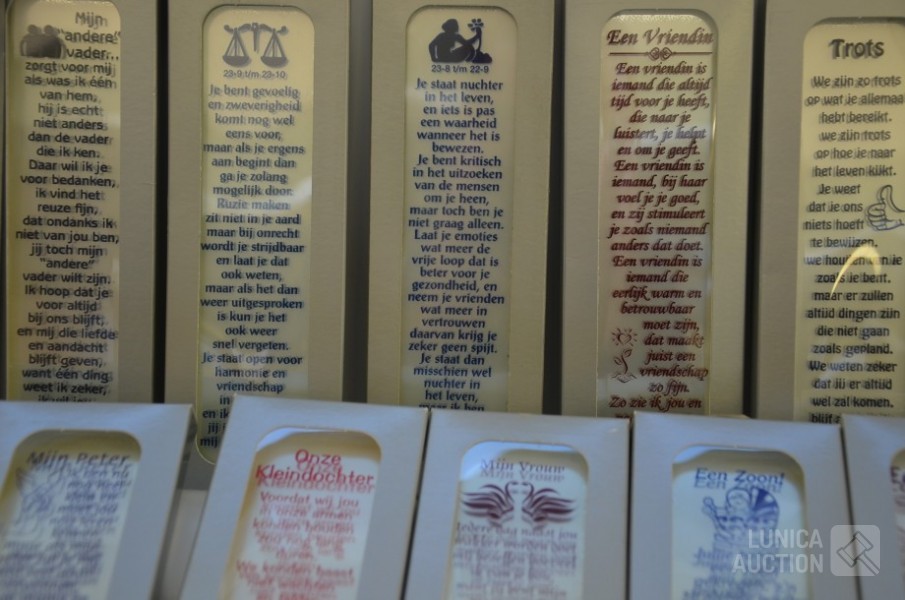 Mijn
"andere"
vader...
zorgt voor mij
als was ik één
van hem,
hij is echt
niet anders
dan de vader
die ik ken.
Daar wil ik je
voor bedanken,
ik vind het
reuze fijn,
dat ondanks ik
niet van jou ben,
jij toch mijn
"andere"
vader wilt zijn.
Ik hoop dat je
voor altijd
bij ons blijft,
en mij die liefde
en aandacht
blijft geven,
want één ding
weet ik zeker,
23-9 t/m 23-10
Je bent gevoelig
en zweverigheid
komt nog wel
eens voor,
maar als je ergens
aan begint dan
ga je zolang
mogelijk door.
Ruzie maken
zit niet in je aard
maar bij onrecht
wordt je strijdbaar
en laat je dat
ook weten,
maar als het dan
weer uitgesproken
is kun je het
ook weer
snel vergeten.
Je staat open voor
harmonie en
vriendschap
in
en ik
mij
23-8 t/m 22-9
Je staat nuchter
in het leven,
en iets is pas
een waarheid
wanneer het is
bewezen.
Je bent kritisch
in het uitzoeken
van de mensen
om je heen,
maar toch ben je
niet graag alleen.
Laat je emoties
wat meer de
vrije loop dat is
beter voor je
gezondheid, en
neem je vrienden
wat meer in
vertrouwen
daarvan krijg je
zeker geen spijt.
Je staat dan
misschien wel
nuchter in
het leven,
maar ik ben
Een Vriendin
Een vriendin is
iemand die altijd
tijd voor je heeft,
die naar je
luistert, je helpt
en om je geeft.
Een vriendin is
iemand, bij haar
voel je je goed,
en zij stimuleert
je zoals niemand
anders dat doet.
Een vriendin is
iemand die
eerlijk warm en
betrouwbaar
moet zijn,
dat maakt
juist een
vriendschap
zo fijn.
Zo zie ik jou en
Trots
We zijn zo trots
op wat je allemaal
hebt bereikt.
we zijn trots
op hoe je naar
het leven kijkt.
Je weet
dat je ons
niets hoeft
te bewijzen.
we houden van je
zoals je bent.
maar er zullen
altijd dingen zijn
die niet gaan
zoals gepland.
We weten zeker
dat jij er altijd
wel zal komen.
Mijn Peter
Onze
Kleindochter
Voordat wij jou
in onze armen
konden houden
Mijn Vrouw
Een Zoon!
LUNICA
AUCTION